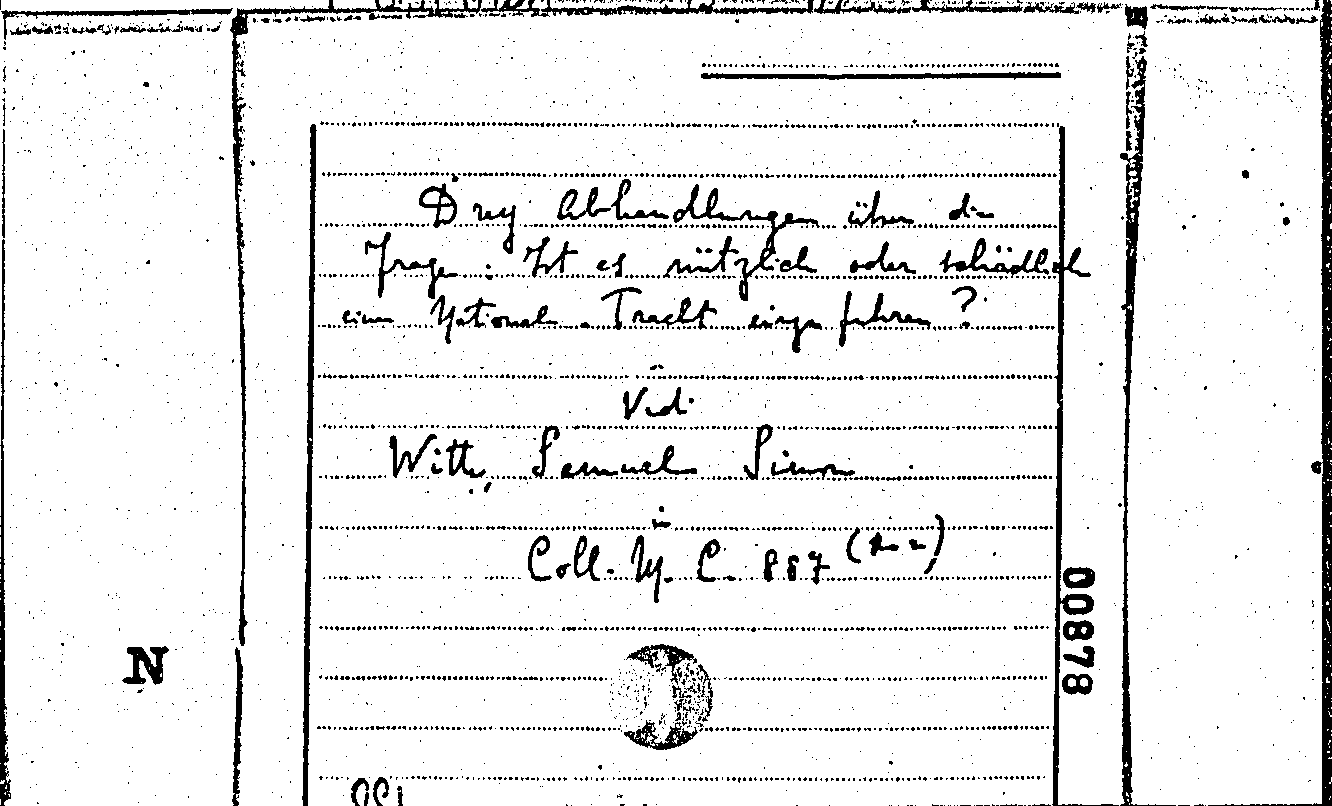 Drey Abhandlungen über die
Frage : Ist es nützlich oder schädlich
eine National-Tracht einzuführen ?
Vid.
Witte, Samuel Simon
in
Coll. M. C. 887
00878
N